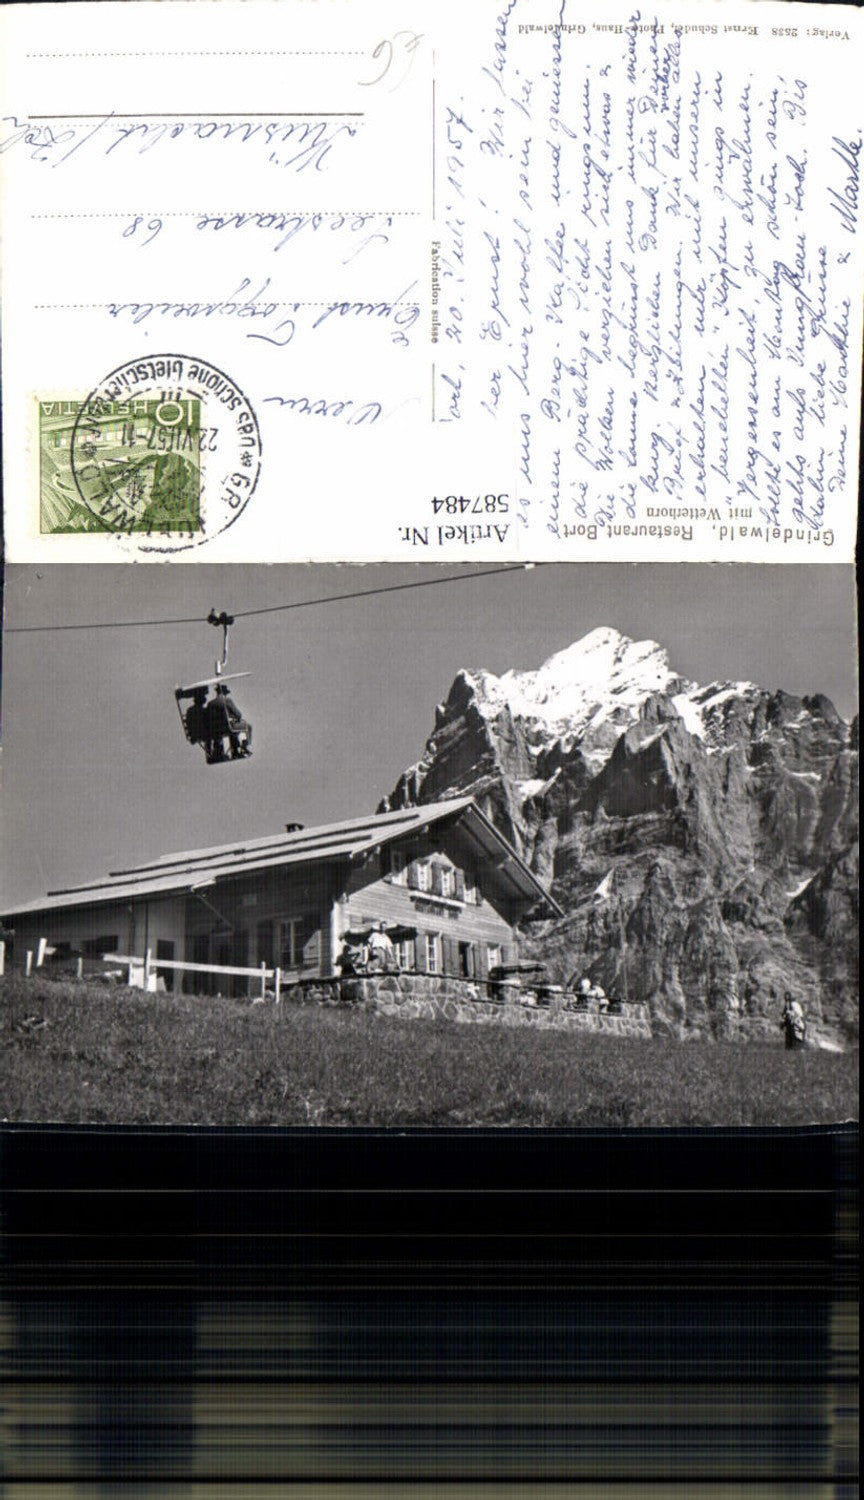 Grindelwald, Restaurant Bort
mit Wetterhorn
Artikel Nr.
587484
Verlag: 2538 Ernst Schudel, Photo-Haus, Grindelwald
Fabrication suisse
HELVETIA
10
22.VII.57
das schöne Gletscher
Herrn
Ernst Toggweiler
Seestrasse 68
Küsnacht / Zch
20. Juli 1957.
Ernst! Wir lassen
es uns hier wohl sein bei
einem Berg-Kaffee und geniessen
die prächtige Sicht ringsum.
Die Wolken verziehen sich etwas &
die Sonne begrüsst uns immer wieder
kurz. Herzlichen Dank für Deinen
Brief & Zeitungen. Wir haben alles
erhalten, nur mit unsern
Köpfen gings in
Vergessenheit, zu erwähnen.
Sollte es am Montag schön sein,
gehts aufs Jungfrau-Joch. Bis
dahin liebe Grüsse
Deine & Marthe